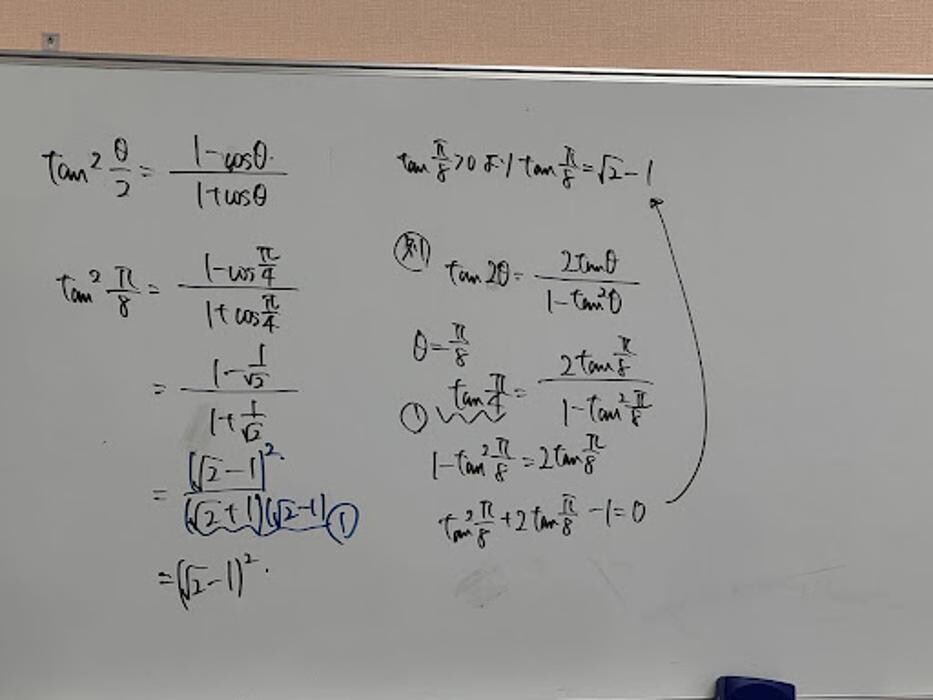 tan² θ/2 = (1-cosθ)/(1+cosθ)
tan² π/8 = (1-cos π/4)/(1+cos π/4)
= (1-1/√2)/(1+1/√2)
= (√2-1)²/((√2+1)(√2-1)) ①
= (√2-1)².
tan π/8 >0 より tan π/8 = √2-1
別
tan2θ = 2tanθ/(1-tan²θ)
θ = π/8
tan π/4 = 2tan π/8/(1-tan² π/8)
①
1-tan² π/8 = 2tan π/8
tan² π/8 + 2tan π/8 -1=0